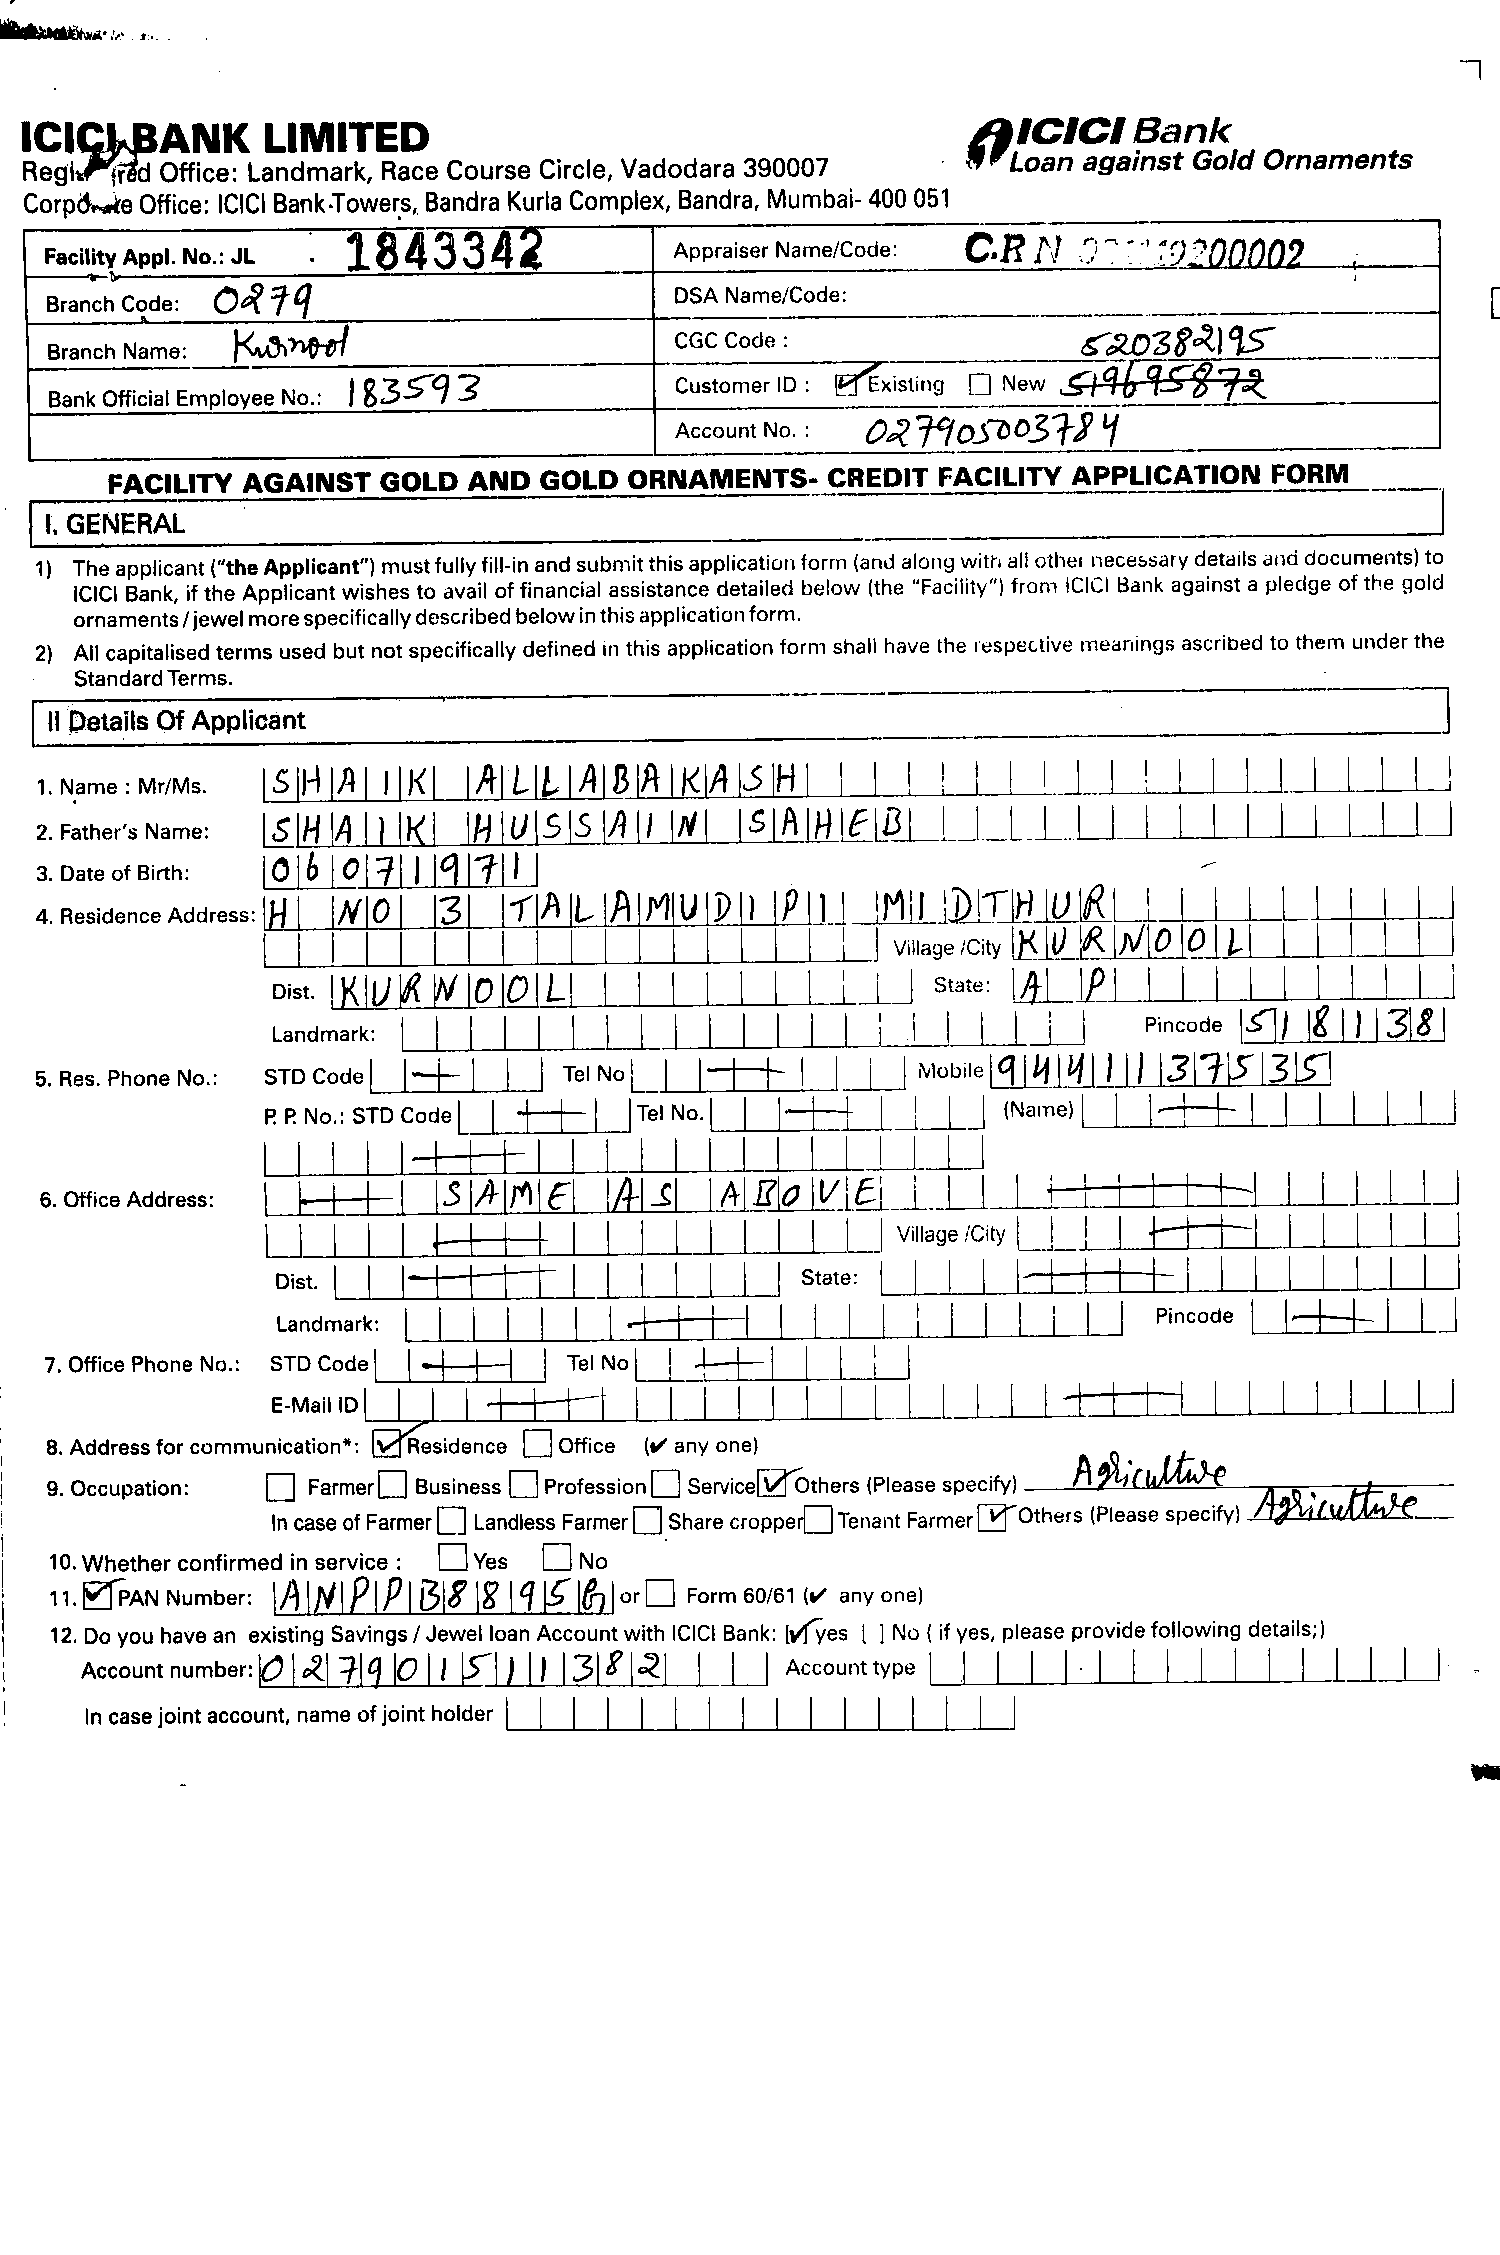 ICICI BANK LIMITED
Registered Office: Landmark, Race Course Circle, Vadodara 390007
Corporate Office: ICICI Bank Towers, Bandra Kurla Complex, Bandra, Mumbai- 400 051
ICICI Bank
Loan against Gold Ornaments
Facility Appl. No.: JL 1843342
Appraiser Name/Code: C.R N
Branch Code: 0279
DSA Name/Code:
Branch Name: Kurnool
CGC Code : 520382195
Bank Official Employee No.: 183593
Customer ID : Existing New 519695872
Account No. : 027905003784
FACILITY AGAINST GOLD AND GOLD ORNAMENTS- CREDIT FACILITY APPLICATION FORM
I. GENERAL
1) The applicant ("the Applicant") must fully fill-in and submit this application form (and along with all other necessary details and documents) to
ICICI Bank, if the Applicant wishes to avail of financial assistance detailed below (the "Facility") from ICICI Bank against a pledge of the gold
ornaments / jewel more specifically described below in this application form.
2) All capitalised terms used but not specifically defined in this application form shall have the respective meanings ascribed to them under the
Standard Terms.
II Details Of Applicant
1. Name : Mr/Ms. SHAIK ALLABAKASH
2. Father's Name: SHAIK HUSSAIN SAHEB
3. Date of Birth: 06071971
4. Residence Address: H NO 3 TALAMUDIPI MIDTHUR
Village /City KURNOOL
Dist. KURNOOL State: A P
Landmark: Pincode 518138
5. Res. Phone No.: STD Code Tel No Mobile 9441137535
P. P. No.: STD Code Tel No. (Name)
6. Office Address: SAME AS ABOVE
Village /City
Dist. State:
Landmark: Pincode
7. Office Phone No.: STD Code Tel No
E-Mail ID
8. Address for communication*: ✓ Residence Office (✔ any one)
9. Occupation: Farmer Business Profession Service ✓ Others (Please specify) Agriculture
In case of Farmer Landless Farmer Share cropper Tenant Farmer ✓ Others (Please specify) Agriculture
10. Whether confirmed in service : Yes No
11. ✓ PAN Number: ANPPB8895G or Form 60/61 (✔ any one)
12. Do you have an existing Savings / Jewel loan Account with ICICI Bank: [✓] yes [ ] No ( if yes, please provide following details;)
Account number: 027901511382 Account type
In case joint account, name of joint holder